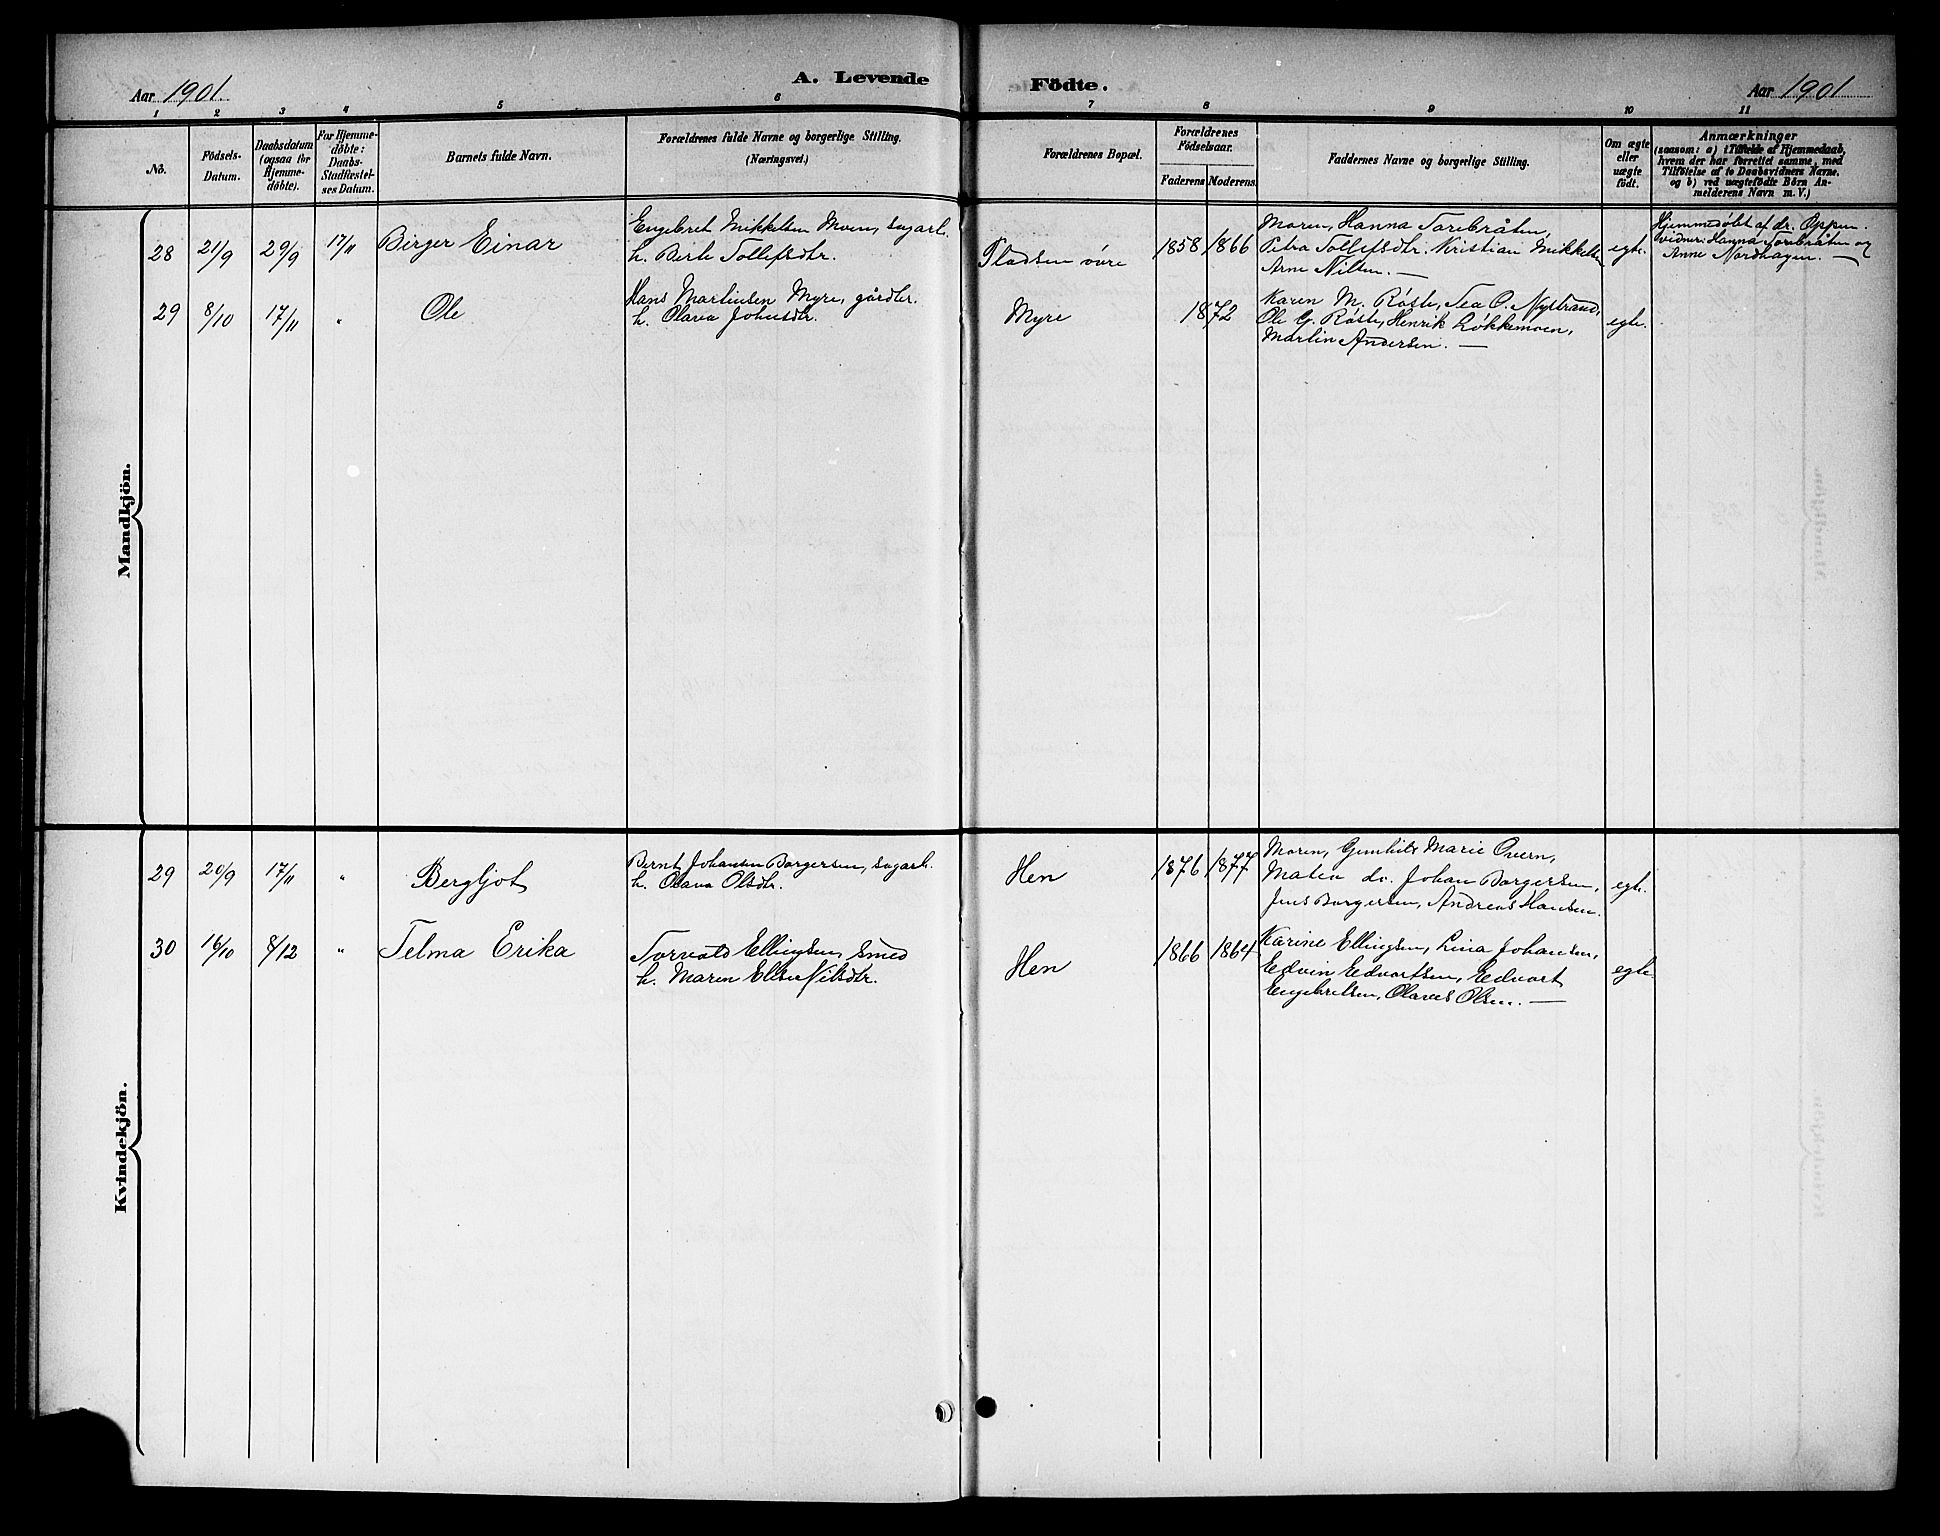 Aar 1901.
A. Levende
Födte.
Aar 1901
1 2 3 4 5 6 7 8 9 10 11
No.
Födsels-
Datum.
Daabsdatum
(ogsaa for
Hjemme-
döbte).
For Hjemme-
döbte:
Daabs-
Stadfæstel-
ses Datum.
Barnets fulde Navn.
Forældrenes fulde Navne og borgerlige Stilling.
(Næringsvei.)
Forældrenes Bopæl.
Forældrenes
Födselsaar.
Faderens Moderens.
Faddernes Navne og borgerlige Stilling.
Om ægte
eller
uægte
födt.
Anmærkninger
(saasom: a) i Tilfælde af Hjemmedaab,
hvem der har forrettet samme, med
Tilföielse af to Daabsvidners Navne,
og b) ved uægtefödte Börn An-
melderens Navn m. V.)
Mandkjön.
28 21/9 29/9 17/11 Birger Einar
Engebret Mikkelsen Moen, sagarb.
h. Berte Tollefsdtr.
Pladsen
1858 1866
Moren, Hanna Torebråten,
Petra Tollefsdtr. Kristian Mikkelsen
Arne Nilsen. —
egte.
Hjemmedøbt af dr. Oppen.
vidner: Hanna Torebråten og
Anne Nordhagen. —
29 8/10 17/11 " Ole
Hans Martinsen Myre, gårdbr.
h. Olava Johnsdtr.
Myre
1872
Karen M. Røste, Tea O. Nystrand,
Ole G. Røste, Henrik Løkkemoen,
Martin Andersen. —
egte.
Kvindekjön.
29 20/9 17/11 " Bergljot
Bernt Johansen Borgersen, sagarb.
h. Olava Olsdtr.
Hen
1876 1877
Moren, Gunhild Marie Overn,
Matea do. Johan Borgersen,
Jens Borgersen, Andreas Hansen.
egte.
30 16/10 8/12 " Telma Erika
Torvald Ellingsen, smed
h. Maren Elise Nilsdtr.
Hen
1866 1864
Karine Ellingsen, Lina Johansen,
Edvin Edvartsen, Edvart
Engebretsen, Olaves Olsen. —
egte.